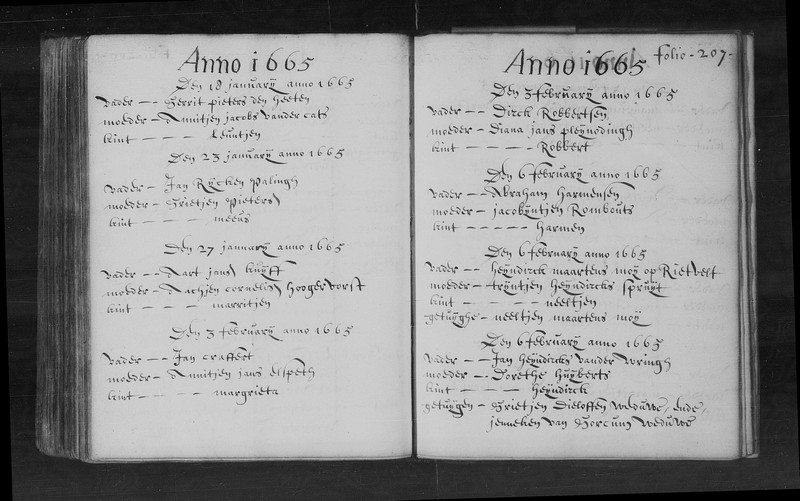 Anno 1665
Den 18 januarÿ anno 1665
vader - - Gerrit pieters den heeten
moeder - Annitjen jacobs vander cats
kint - - - - Leuntjen
Den 23 januarÿ anno 1665
vader - Jan Rycken Palingh
moeder - Grietjen Pieters
kint - - - - meeus
Den 27 januarÿ anno 1665
vader - - Aart jans kruÿff
moeder - Aechjen cornelis hoogervorst
kint - - - - marritjen
Den 3 februarÿ anno 1665
vader - - Jan craffert
moeder - Annitjen jans elspeth
kint - - - - margrieta
folio - 207 -
Anno 1665
Den 3 februarÿ anno 1665
vader - - Dirck Robbertsen
moeder - Diana jans
kint - - - - - Robbert
Den 6 februarÿ anno 1665
vader - - Abraham Harmensen
moeder - jacobÿntjen Rombouts
kint - - - - - Harmen
Den 6 februarÿ anno 1665
vader - - heÿndirck maartens moÿ op Rietvelt
moeder - trÿntjen heÿndircks spruÿt
kint - - - - - neeltjen
getuÿghe - neeltjen maartens moÿ
Den 6 februarÿ anno 1665
vader - - Jan heÿndircks vander wringh
moeder - - Dorethe huÿberts
kint - - - - - heÿndirck
getuÿgen - Grietjen Dieloffen weduwe, ende,
jenneken van Gorcum weduwe